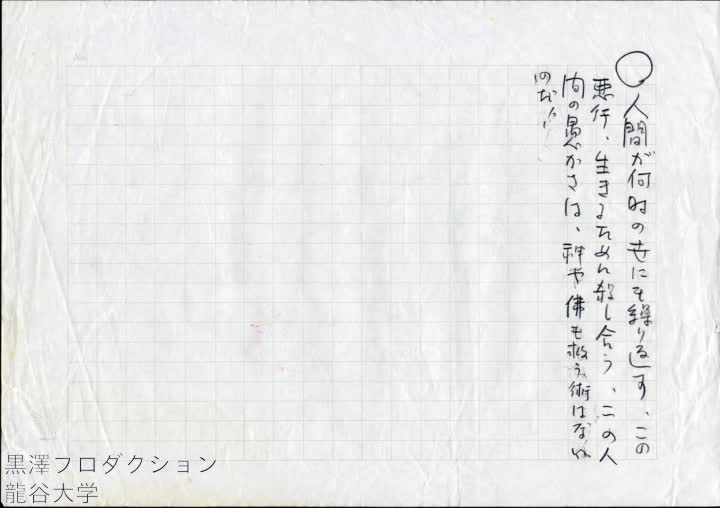 ○人間が何時の世にも繰り返す、この
悪行、生きるため殺し合う、この人
間の愚かさは、神や佛も救う術はない
のだ!!
黒澤フロダクション
龍谷大学